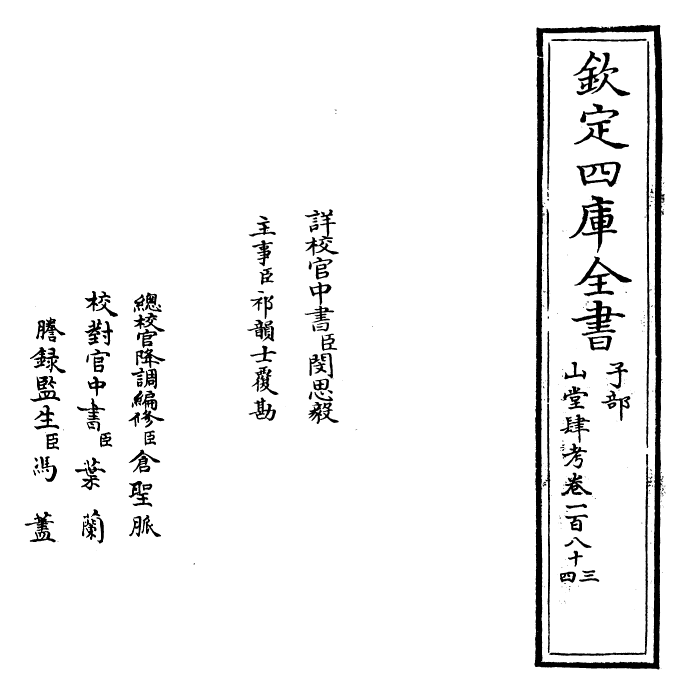 欽定四庫全書
子部
山堂肆考卷一百八十三四
詳校官中書臣閔思毅
主事臣祁韻士覆勘
總校官降調編修臣倉聖脈
校對官中書臣葉蘭
謄録監生臣馮藎